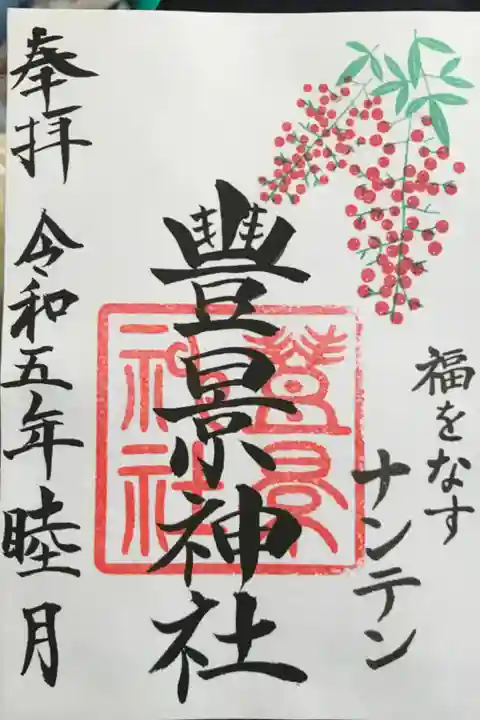 福をなす
ナンテン
豊景神社
奉拝 令和五年 睦月
豊景
神社